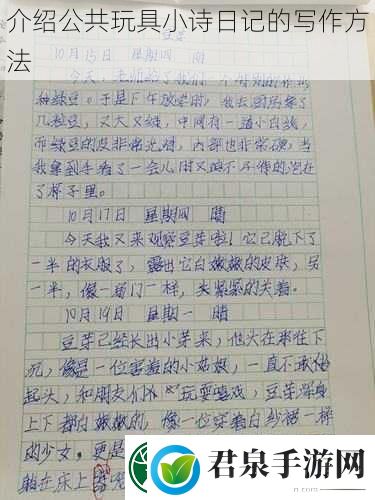 介绍公共玩具小诗日记的写作方
法
豆芽
10月15日 星期四 晴
今天,老师给了我们一个特别的作业
种绿豆。于是下午放学后,我去厨房拿了
几粒豆,又大又绿,中间有一道小白线,
而绿豆的皮非常光滑,内部也非常硬,当
我拿到手看了一会儿时又迫不及待的泡在
了杯子里。
10月17日 星期四 晴
今天我又来观察豆芽啦!它已脱下了
一半的衣服了,露出它白嫩嫩的皮肤,另
一半,像一扇门一样,关紧紧的关着。
10月19日 星期一 晴
豆芽已经长出小芽来,他头在那往下
沉,像是一位害羞的小姑娘,一直不敢抬
起头,和朋友们在 玩耍嬉戏,豆芽浑身
上下都白嫩嫩的,像一位穿着白纱裙一样
的少女,更是
躺在床上
君泉手游网